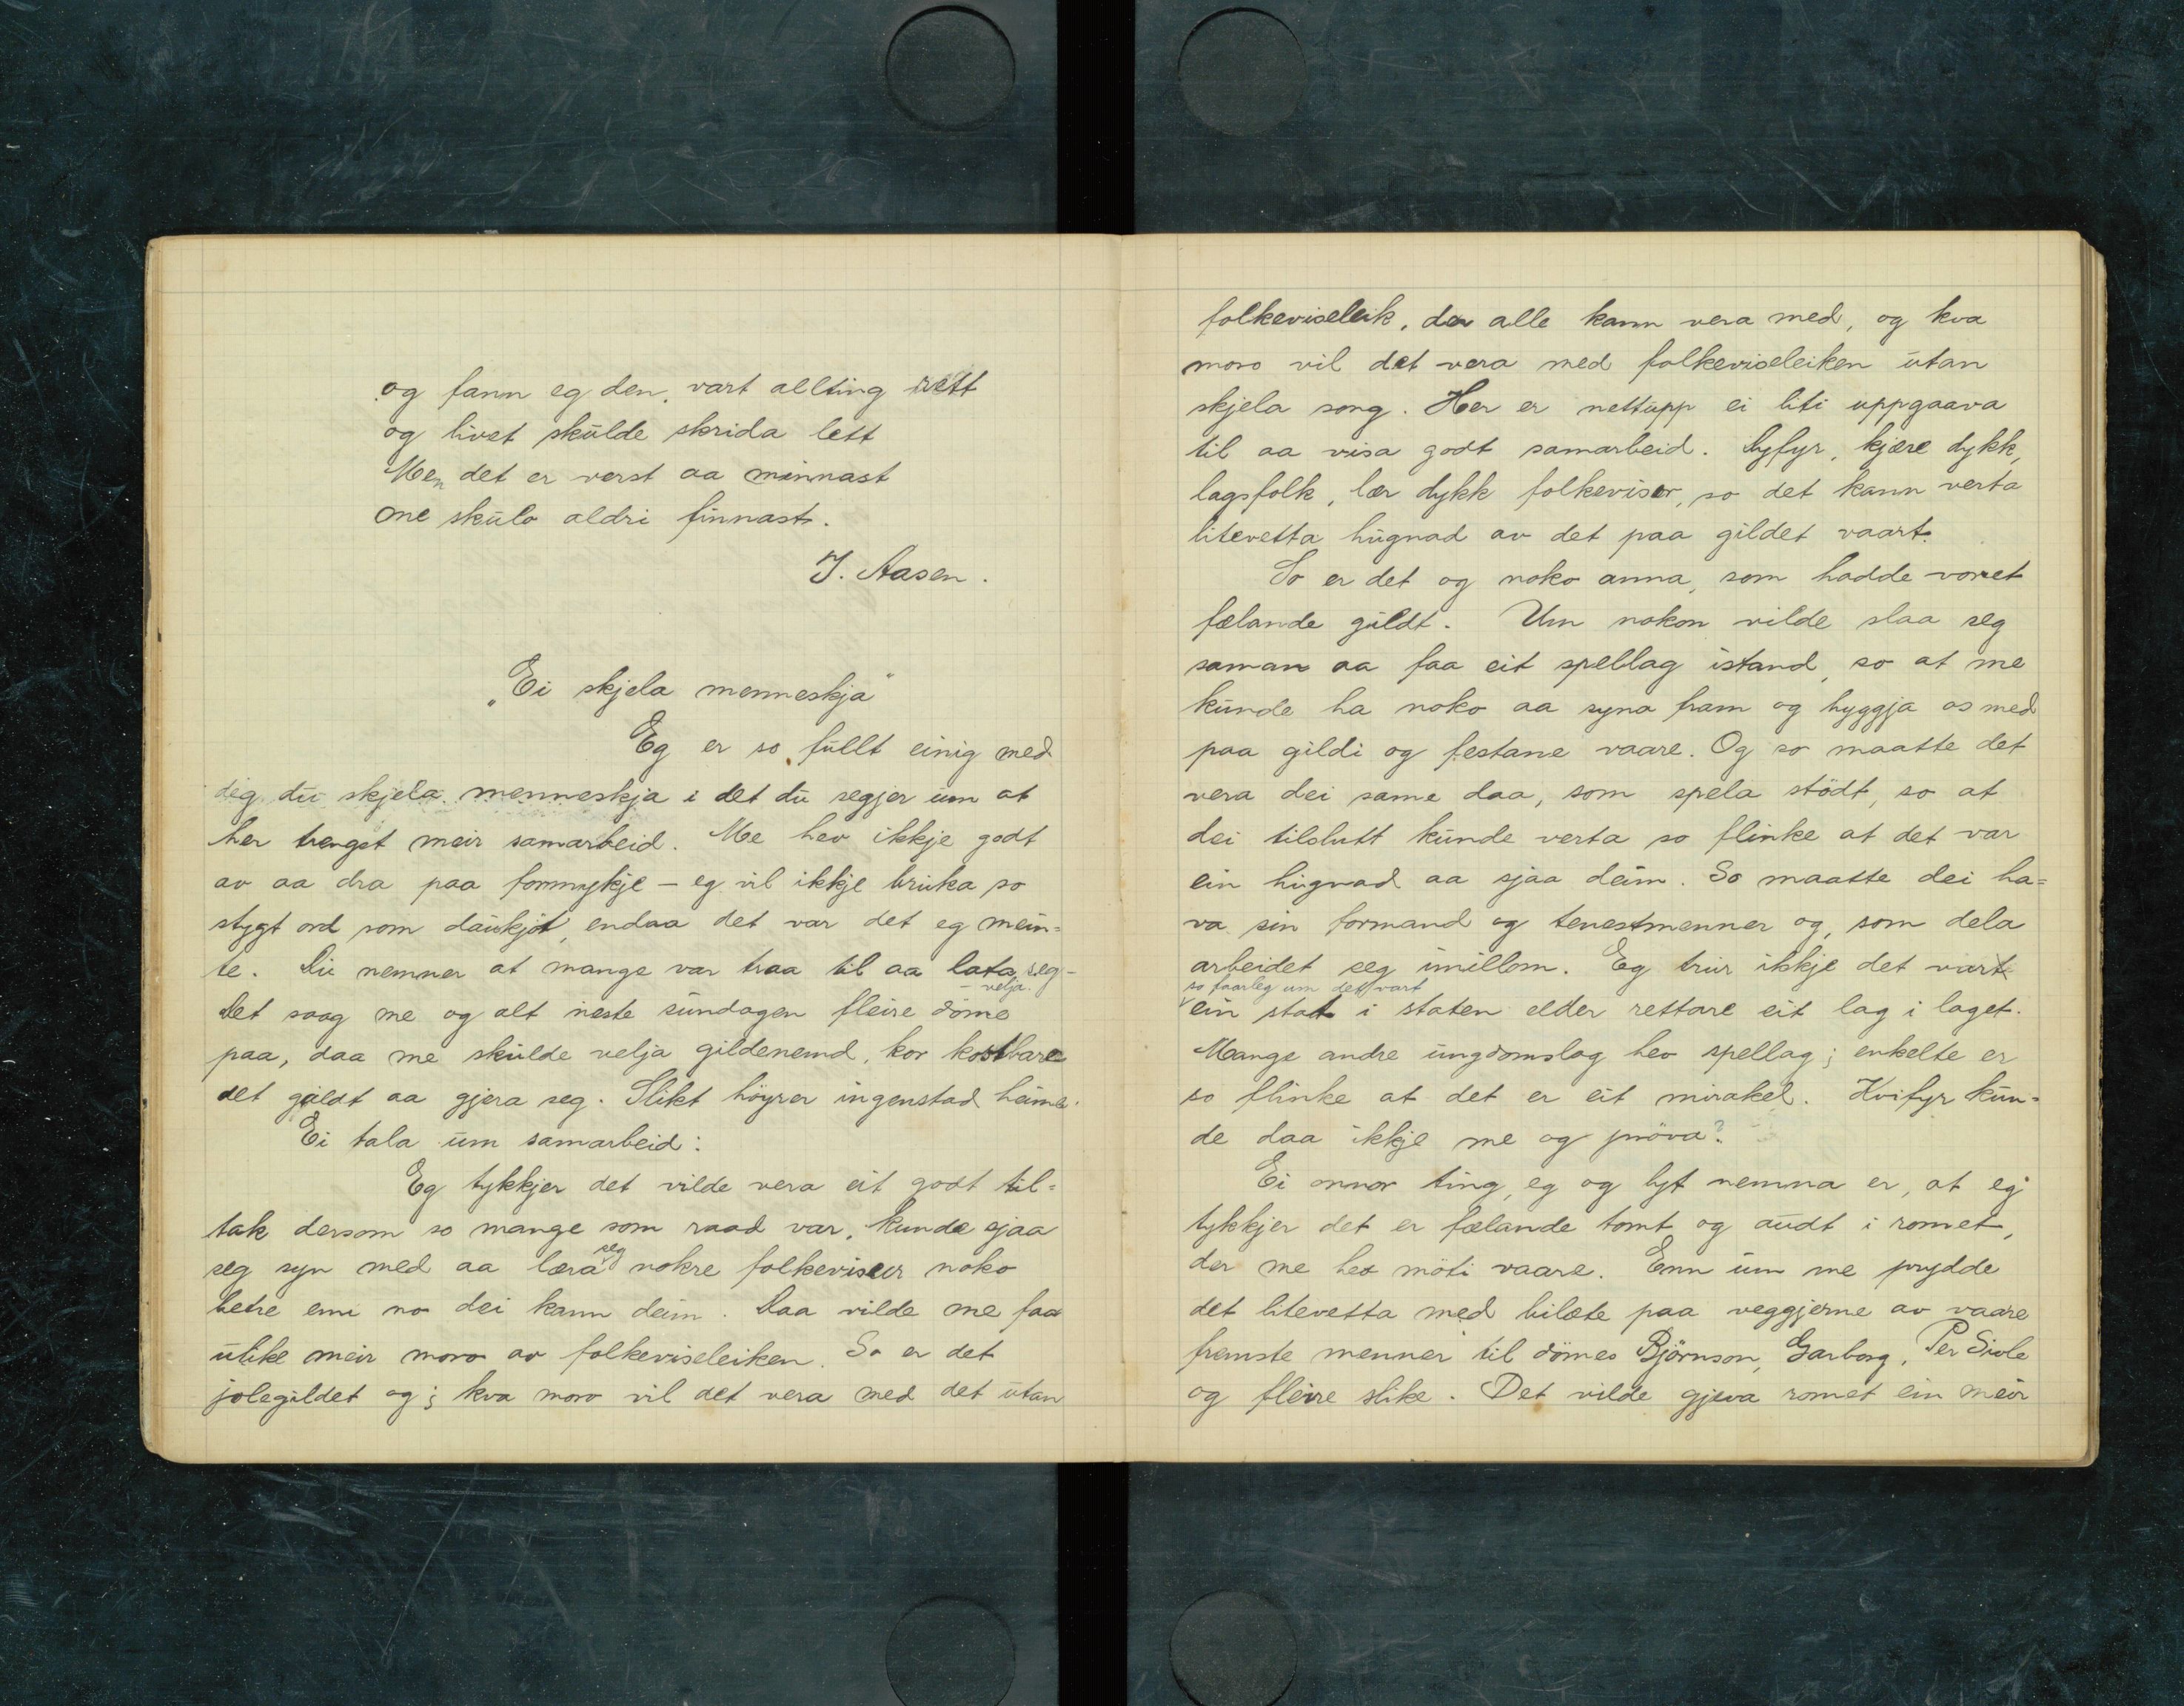 og fann eg den, vart allting rett
og livet skulde skrida lett
Men det er verst aa minnast
me skulo aldri finnast.
I. Aasen.
„Ei skjela menneskja"
Eg er so fullt einig med
deg du skjela menneskja i det du segjer um at
her trengst meir samarbeid. Me hev ikkje godt
av aa dra paa formykje – eg vil ikkje bruka so
stygt ord som daukjøt, endaa det var det eg mein=
te. Du nemner at mange var traa til aa lata seg –
– velja.
Det saag me og alt neste sundagen fleire döme
paa, daa me skulde velja gildenemd, kor kostbare
det gjaldt aa gjera seg. Slikt höyrer ingenstad heime.
Ei tala um samarbeid:
Eg tykkjer det vilde vera eit godt til=
tak dersom so mange som raad var, kunde sjaa
seg syn med aa læra seg nokre folkeviseur noko
betre enn no dei kann deim. Daa vilde me faa
ulike meir moro av folkeviseleiken. So er det
jolegildet og; kva moro vil det vera med det utan
folkeviseleik, der alle kann vera med, og kva
moro vil det vera med folkeviseleiken utan
skjela song. Her er nettupp ei liti uppgaava
til aa visa godt samarbeid. Dyfyr, kjære dykk,
lagsfolk, lær dykk folkeviser, so det kann verta
litevetta hugnad av det paa gildet vaart.
So er det og noko anna, som hadde voret
fælande gildt. Um nokon vilde slaa seg
saman aa faa eit spellag istand, so at me
kunde ha noko aa syna fram og hyggja os med
paa gildi og festane vaare. Og so maatte det
vera dei same daa, som spela stödt, so at
dei tilslutt kunde verta so flinke at det var
ein hugnad aa sjaa deim. So maatte dei ha=
va sin formand og tenestmenner og, som dela
arbeidet seg imillom. Eg trur ikkje det vart
so faarleg um det vart
ein stat i staten elder rettare eit lag i laget.
Mange andre ungdomslag hev spellag; enkelte er
so flinke at det er eit mirakel. Kvifyr kun=
de daa ikkje me og pröva?
Ei onnor ting, eg og lyt nemna er, at eg
tykkjer det er fælande tomt og audt i romet,
der me hev möti vaare. Enn um me prydde
det litevetta med bilæte paa veggjerne av vaare
fremste menner til dömes Björnson, Garborg, Per Sivle
og fleire slike. Det vilde gjeva romet ein meir